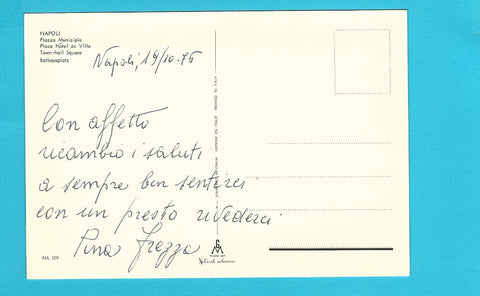 NAPOLI
Piazza Municipio
Place Hôtel de Ville
Town-hall Square
Rathausplatz
Napoli, 19/10-76
Con affetto
ricambio i saluti
a sempre ben sentirci
con un presto rivederci
Pina Frezza
NA 109
PRINTED IN ITALY